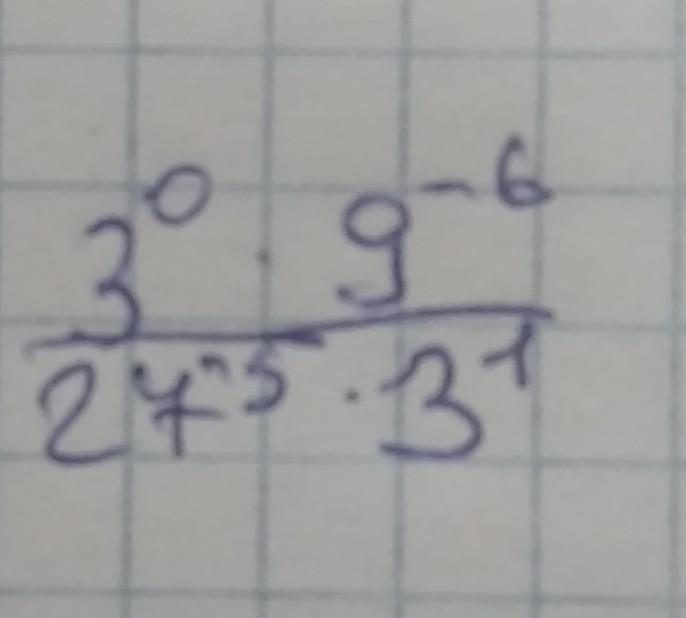 3⁰ · 9⁻⁶
27⁻⁵ · 3¹